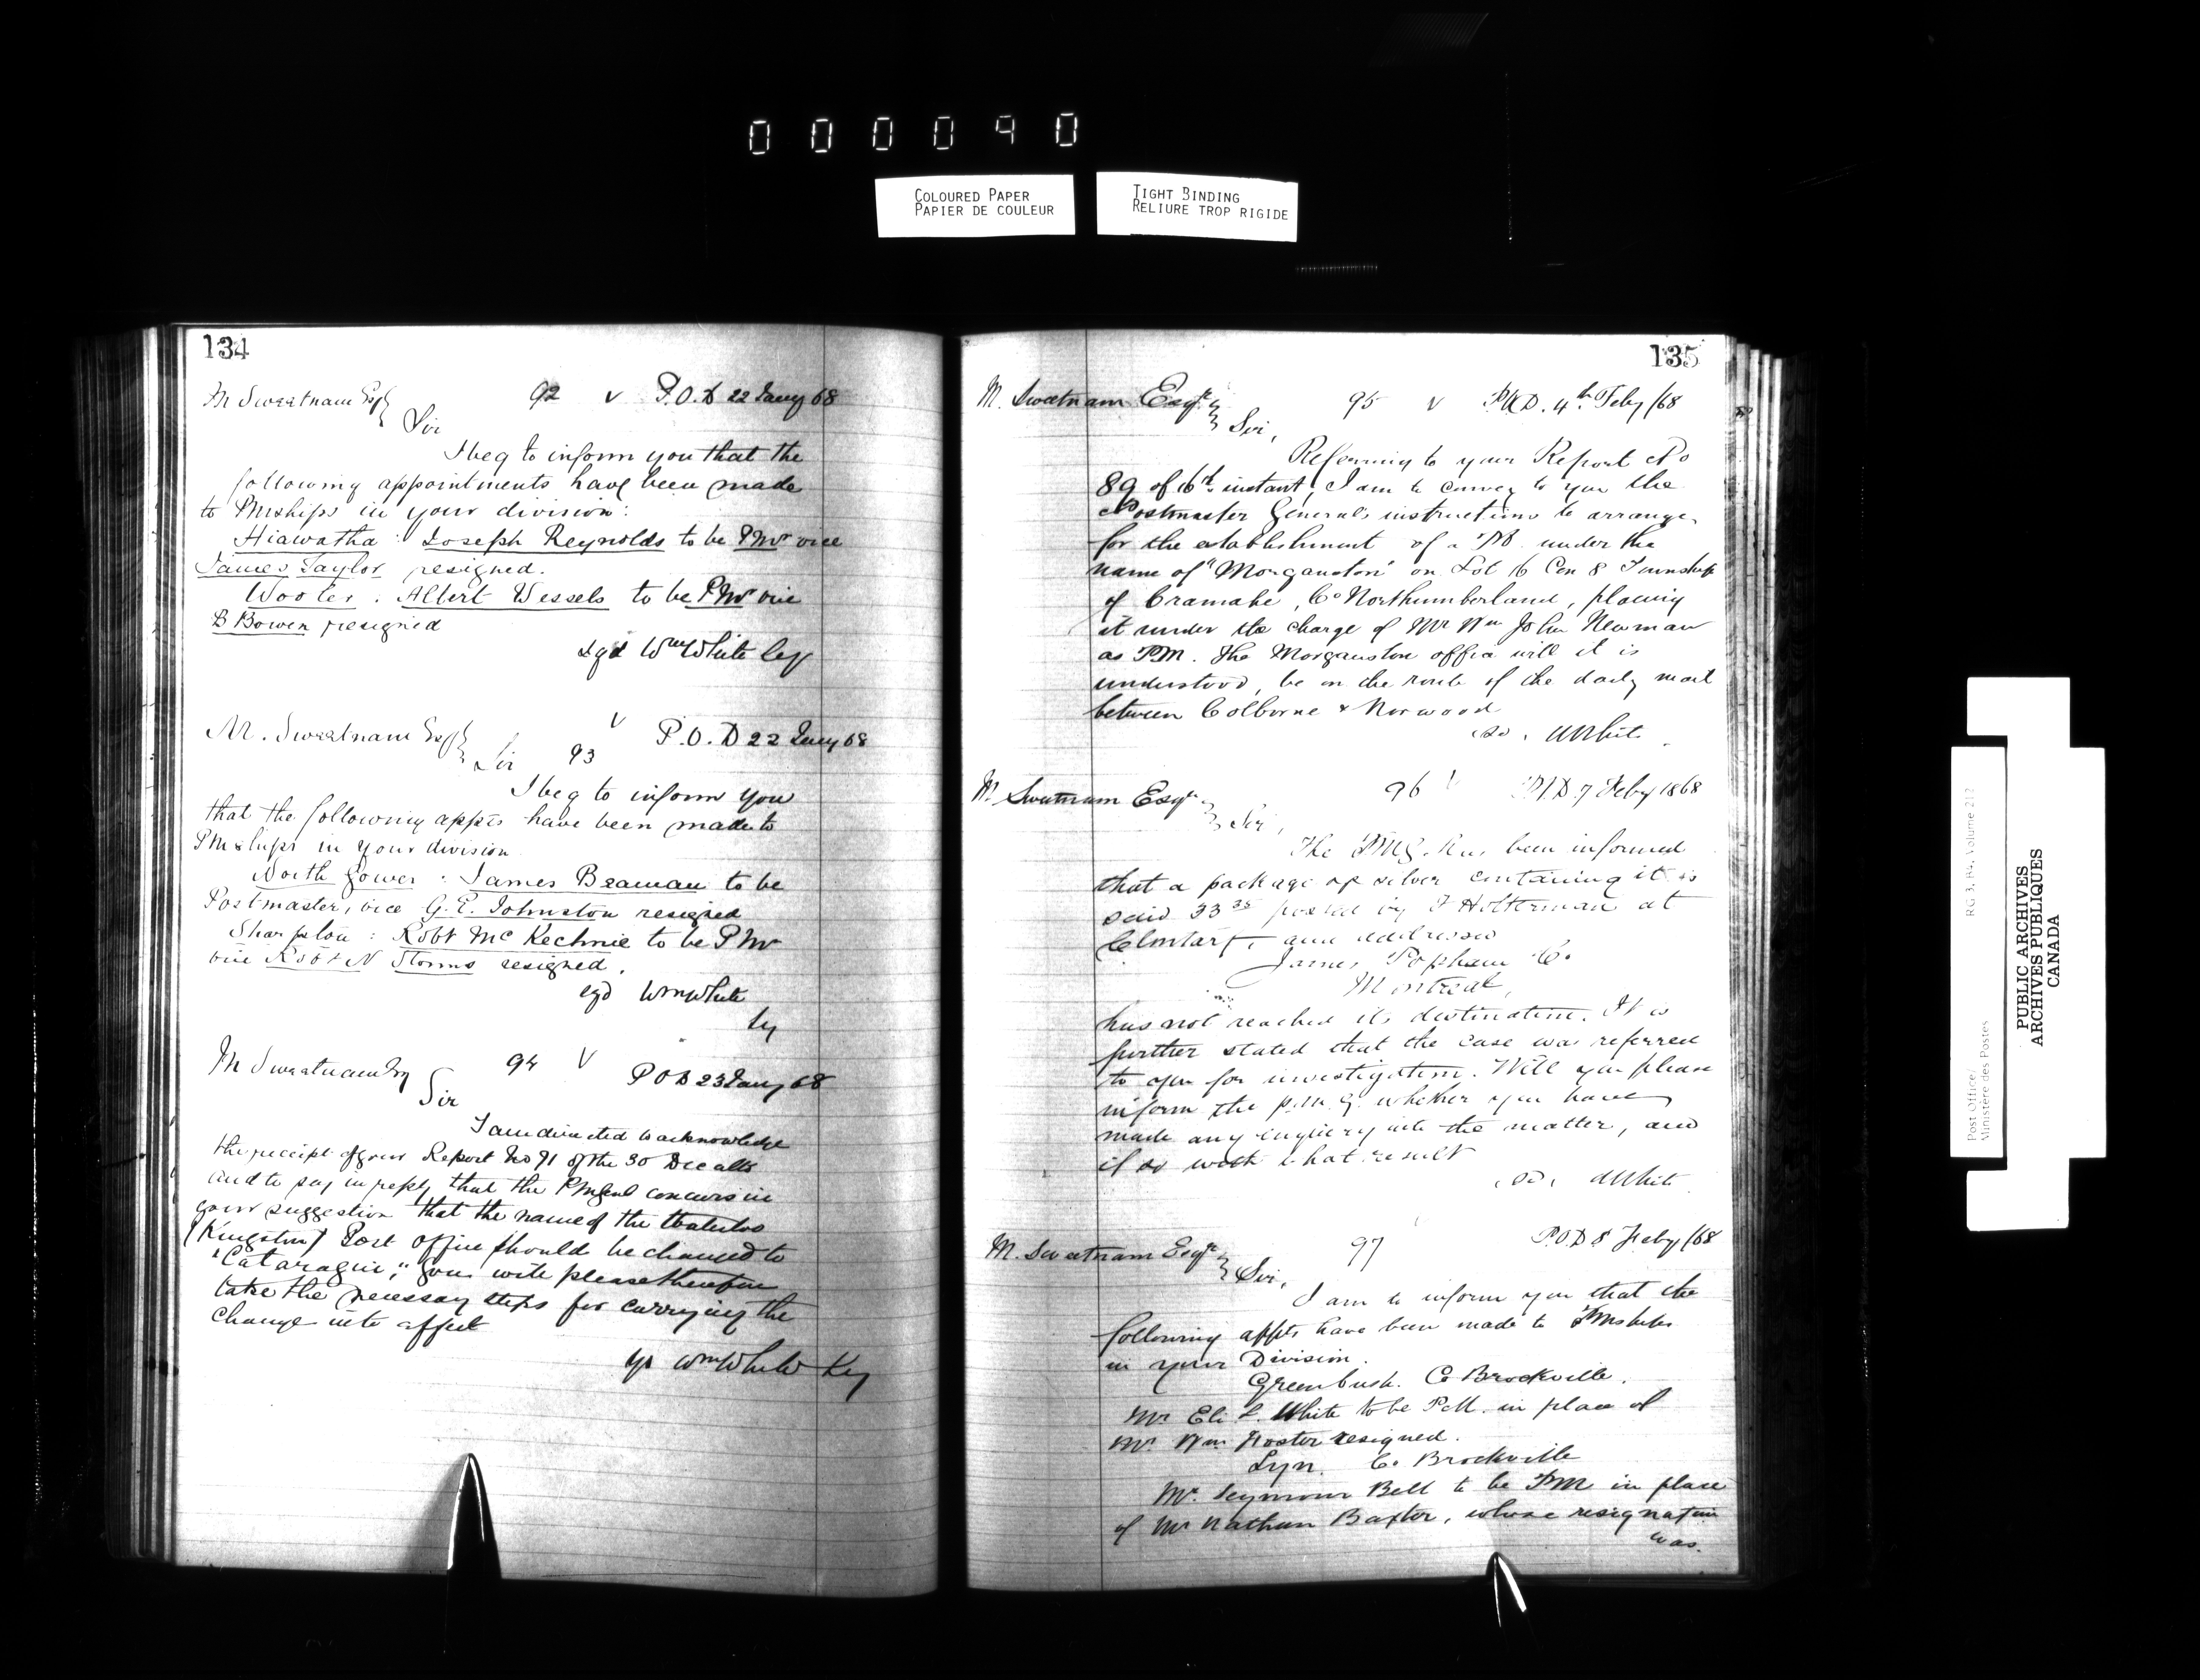 000090
COLOURED PAPER
PAPIER DE COULEUR
TIGHT BINDING
RELIURE TROP RIGIDE
134
M Sweetnam Esq 92 v P.O.D 22 Jany 68
Sir
I beg to inform you that the
following appointments have been made
to PMships in your division:
Hiawatha : Joseph Reynolds to be PMr vice
James Taylor resigned.
Wooler : Albert Wessels to be PMr vice
B Bowen resigned
sgd Wm White Sey
M. Sweetnam Esq v P.O.D 22 Jany 68
Sir 93
I beg to inform you
that the following appts have been made to
PMships in your division
North Gower : James Beaman to be
Postmaster, vice G.E. Johnston resigned
Sharpton : Robt McKechnie to be PMr
vice Robt N Storms resigned.
sgd Wm White
Sy
M Sweetnam Esq 94 v P O D 23 Jany 68
Sir
I am directed to acknowledge
the receipt of your Report No 91 of the 30 Dec ulto
and to say in reply that the PMGenl concurs in
your suggestion that the name of the Waterloo
(Kingston) Post Office should be changed to
"Cataraqui," you will please therefore
take the necessary steps for carrying the
change into effect
sgd Wm White Sey
135
M. Sweetnam Esqre 95 v P.O.D. 4th Feby /68
Sir,
Referring to your Report No
89 of 16th instant, I am to convey to you the
Postmaster General's instructions to arrange
for the establishment of a PO under the
name of "Morganston" on Lot 16 Con 8 Township
of Cramahe, Co Northumberland, placing
it under the charge of Mr Wm John Newman
as PM. The Morganston office will it is
understood, be on the route of the daily mail
between Colborne & Norwood
sd. WWhite
M. Sweetnam Esqre 96 v P.O.D. 7 Feby 1868
Sir,
The PMG. has been informed
that a package of silver containing it is
said 33 35 posted by J Holterman at
Clontarf, and addressed
James Popham Co.
Montreal,
has not reached its destination. It is
further stated that the case was referred
to you for investigation. Will you please
inform the P.M.G. whether you have
made any inquiry into the matter, and
if so with what result
sd. WWhite
M. Sweetnam Esqre 97 P.O.D 8 Feby /68
Sir,
I am to inform you that the
following appts have been made to PMships
in your Division.
Greenbush. Co Brockville.
Mr Eli L. White to be P.M. in place of
Mr. Wm Foster resigned.
Lyn. Co. Brockville
Mr. Seymour Bell to be PM in place
of Mr Nathan Baxter, whose resignation
was.
RG 3, B4, Volume 212
Post Office/
Ministère des Postes
PUBLIC ARCHIVES
ARCHIVES PUBLIQUES
CANADA